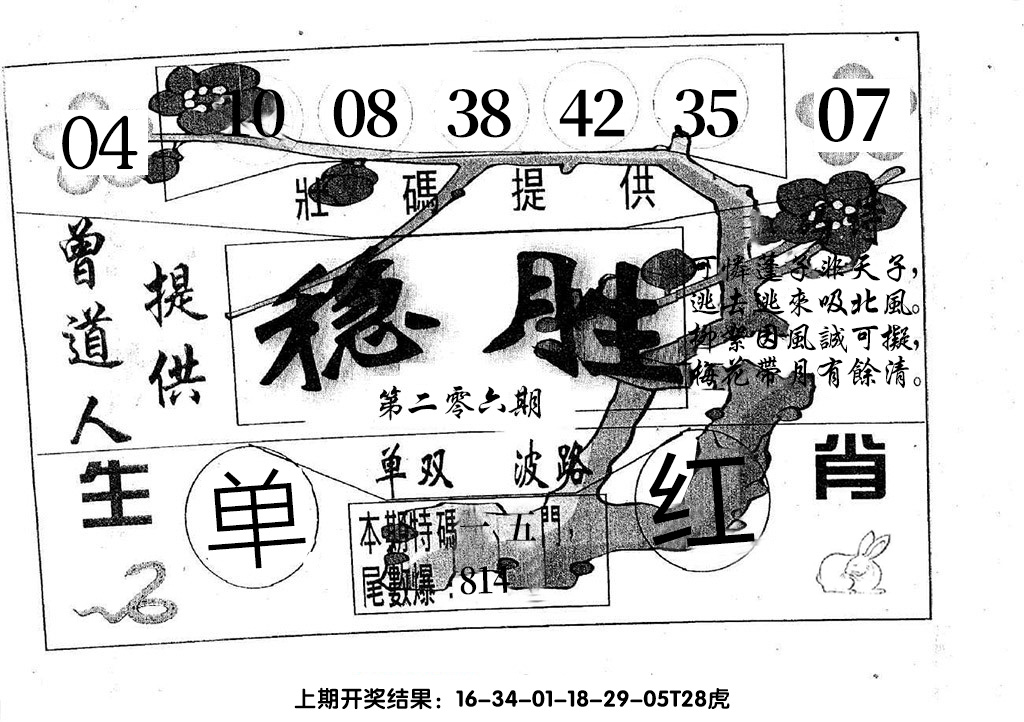 04 10 08 38 42 35 07
壯碼提供
特
曾道人
提供
稳胜
第二零六期
可憐蓮子非天子，
逃去逃來吸北風。
柳絮因風誠可擬，
梅花帶月有餘清。
单双 波路
生肖
单
红
本期特碼一、五門，
尾數爆：814
上期开奖结果：16-34-01-18-29-05T28虎